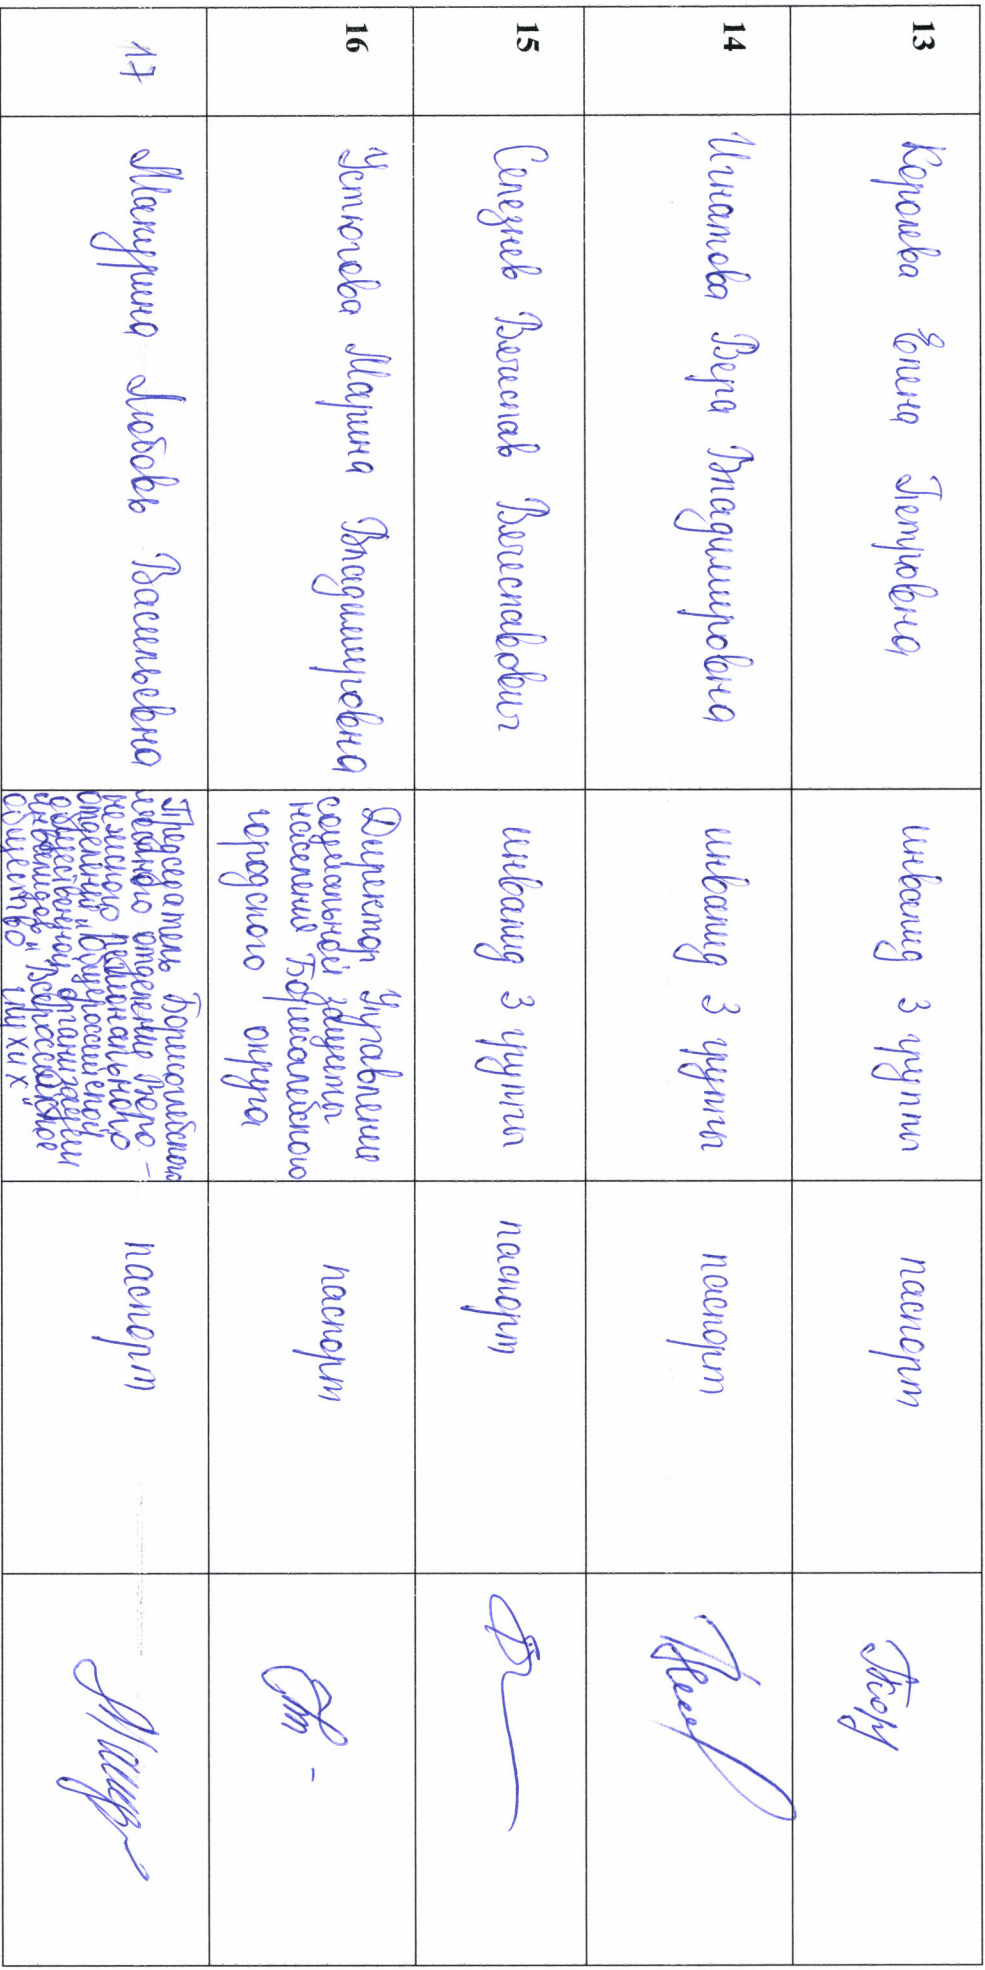 13
Королева Елена Петровна
инвалид 3 группы
паспорт
14
Игнатова Вера Владимировна
инвалид 3 группы
паспорт
15
Селезнев Вячеслав Вячеславович
инвалид 3 группы
паспорт
16
Устюгова Марина Владимировна
Директор Управление
социальной защиты
населения Борисоглебского
городского округа
паспорт
17
Мащурина Любовь Васильевна
Председатель Борисоглебского
местного отделение Воро-
нежского регионального
отделения "Общероссийской
общественной организации
инвалидов "Всероссийское
общество глухих"
паспорт